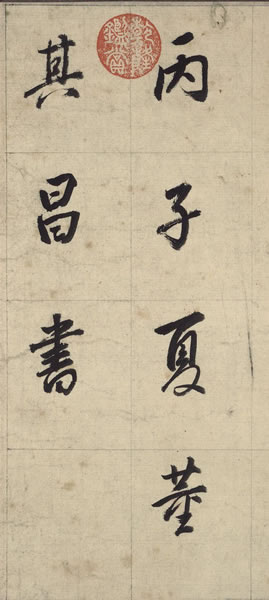 丙子夏董
其昌書